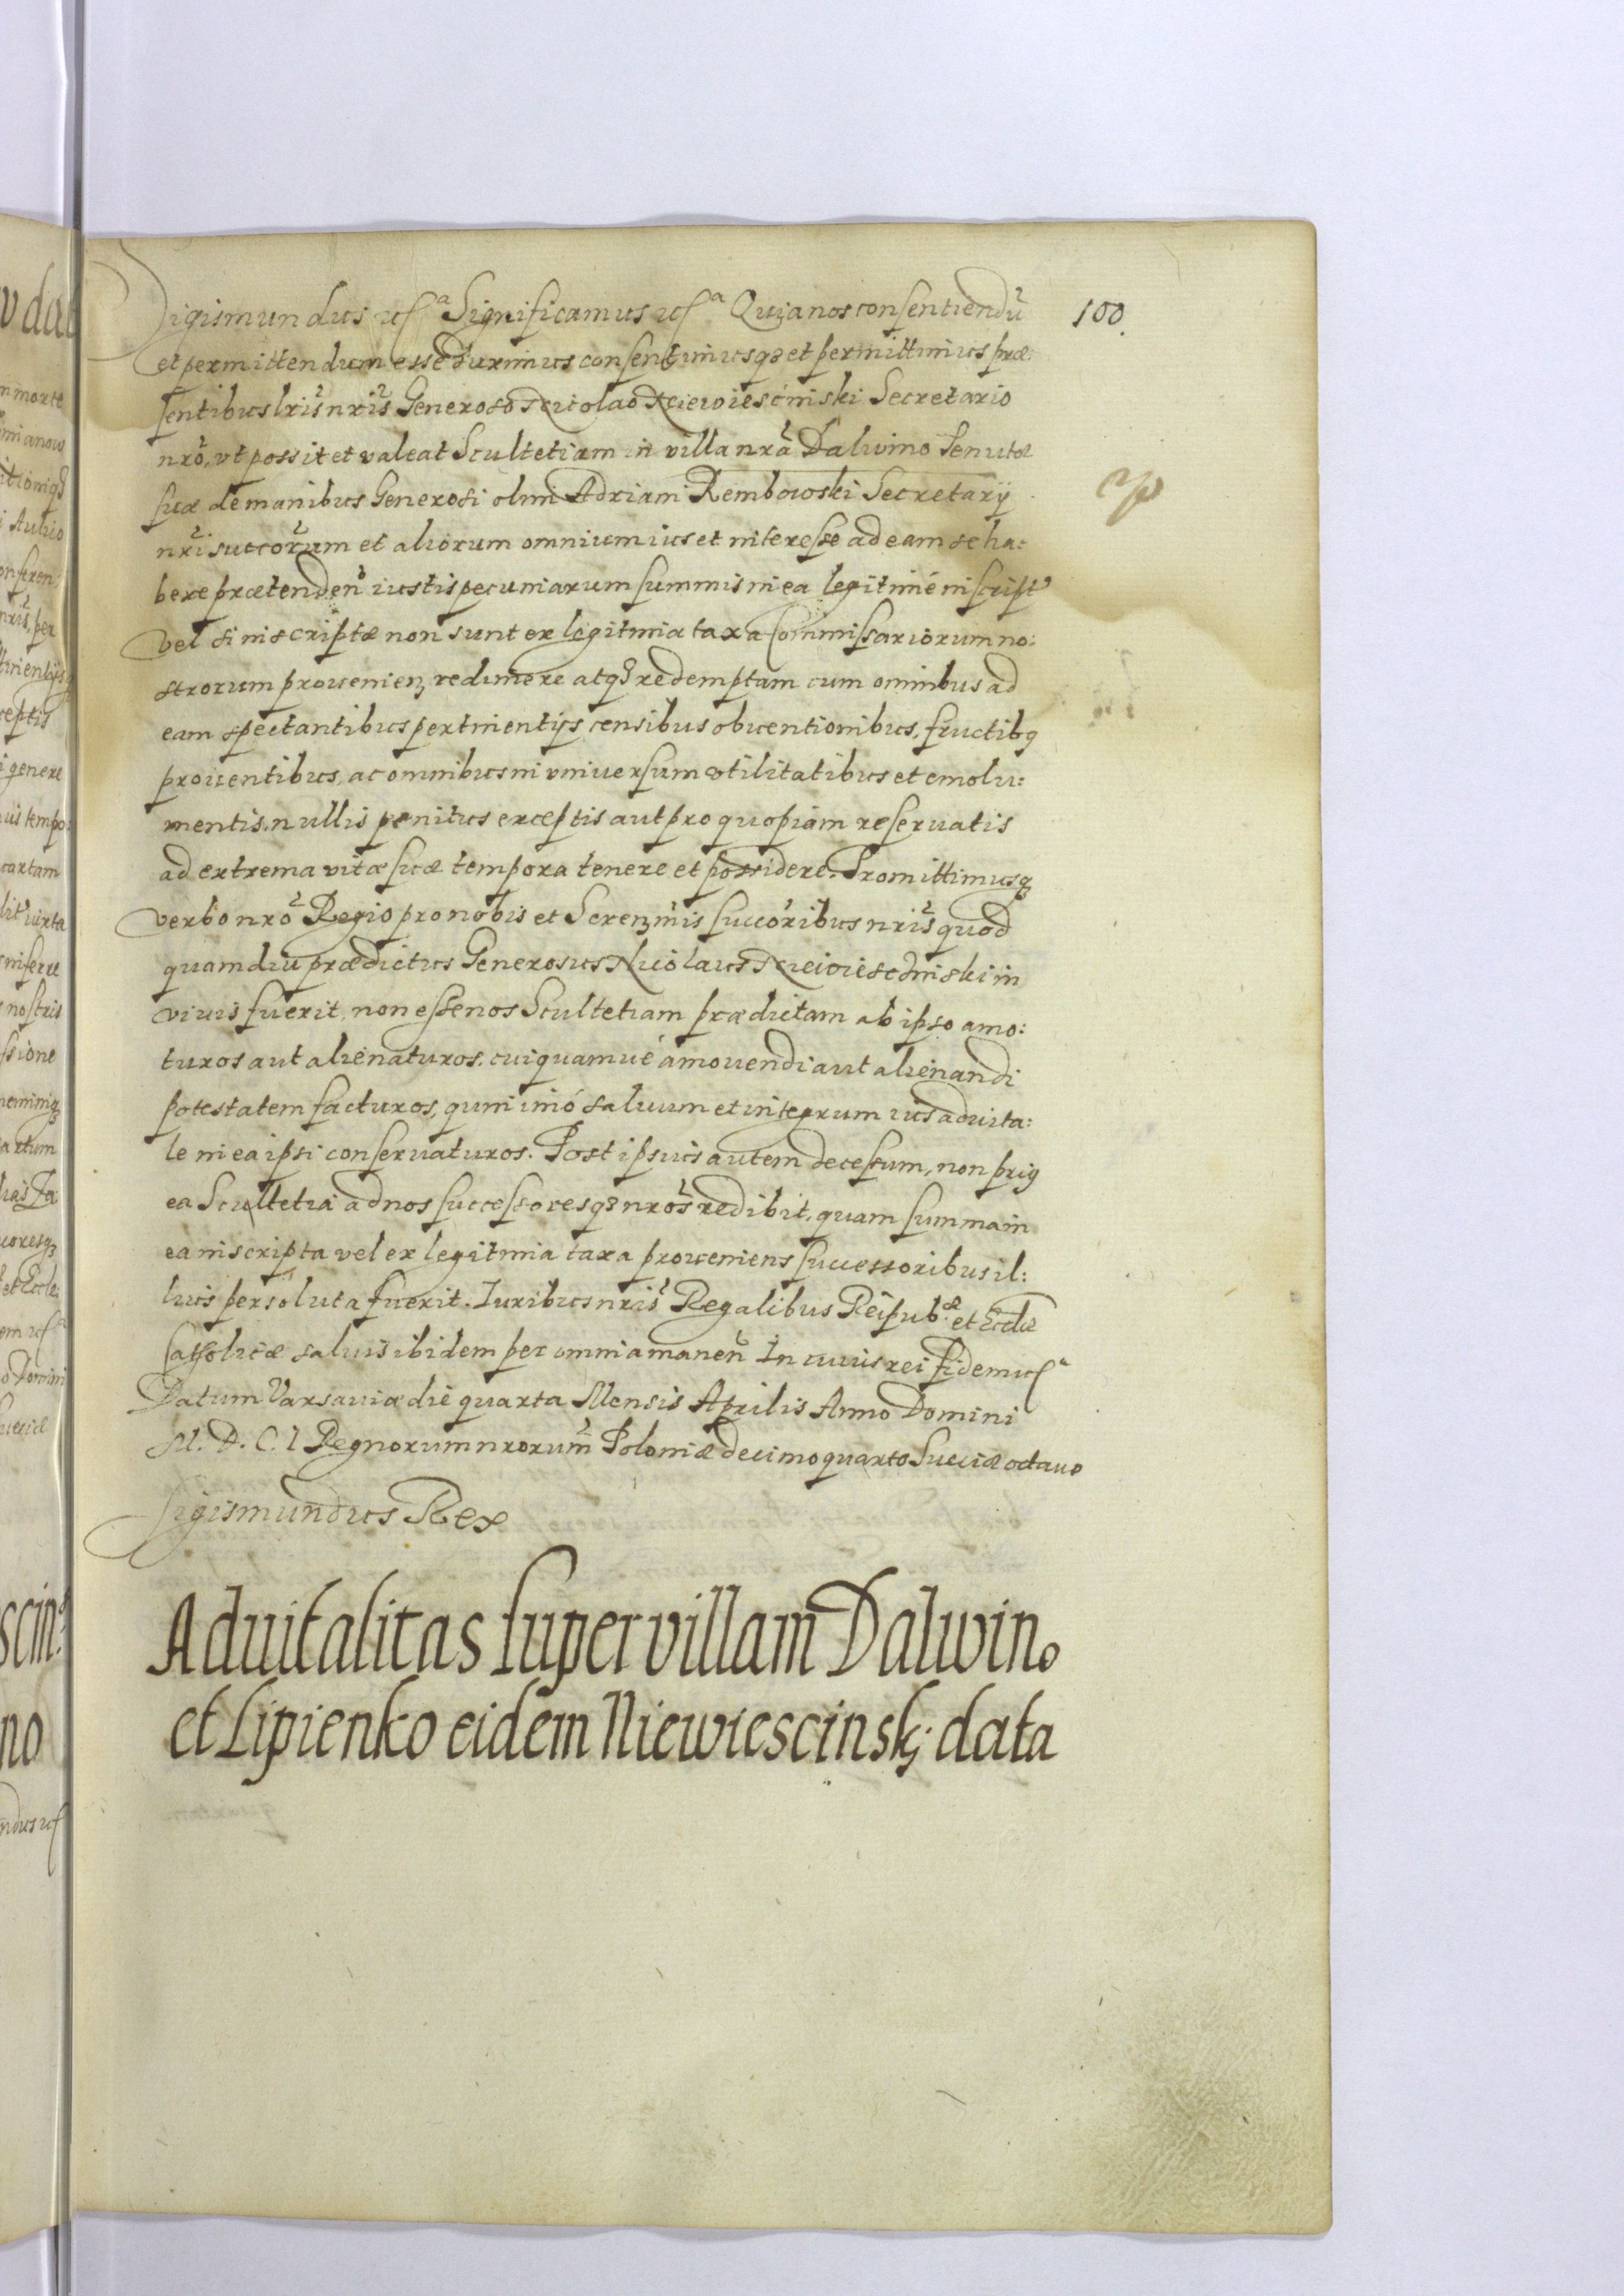 Sigismundus etc.ᵃ Significamus etc.ᵃ Quia nos consentiendū 100.
et permittendum esse duximus consentimusq₃ et permittimus præ:
sentibus lr̃is nr̃is Generoso Nicolao Niewiesćinski Secretario
nr̃o, vt possit et valeat Scultetiam in villa nr̃a Dalwino Tenutæ
suæ de manibus Generosi olim Adriani Rembowski Secretarÿ
nr̃i succor̃um et aliorum omnium ius et interesse ad eam se ha:
bere prætenden̄ iustis pecuniarum summis in ea legitimé inscript'
vel si inscriptæ non sunt ex legitima taxa Commissariorum no:
strorum prouenien₃ redimere atq₃ redemptam cum omnibus ad
eam spectantibus pertinentijs censibus obuentionibus, fructibꝯ
prouentibus, ac omnibus in vniuersum vtilitatibus et emolu:
mentis, nullis penitus exceptis aut pro quopiam reseruatis
ad extrema vitæ suæ tempora tenere et possidere. Promittimusq₃
verbo nr̃o Regio pro nobis et Seren₃mis succoribus nr̃is quod
quamdiu prædictus Generosus Nicolaus Niewiescinski in
viuis fuerit, non esse nos Scultetiam prædictam ab ipso amo:
turos aut alienaturos, cuiquamué amouendi aut alienandi
potestatem facturos, quin imó saluum et integrum ius aduita:
le in ea ipsi conseruaturos. Post ipsius autem decessum, non priꝯ
ea Scultetia ad nos successoresq₃ nr̃os redibit, quam summa in
ea inscripta vel ex legitima taxa proueniens successoribus il:
lius persoluta fuerit. Iuribus nr̃is Regalibus Reipub.æ et Eccliæ
Catholicæ saluis ibidem per omnia manen̄ In cuius rei fidem etc.ᵃ
Datum Varsauiæ die quarta Mensis Aprilis Anno Domini
M. D. C. I Regnorum nr̃orum Poloniæ decimoquarto Sueciæ octauo
Sigismundus Rex
Aduitalitas super villam Dalwino
et Lipienko eidem Niewiescinski data